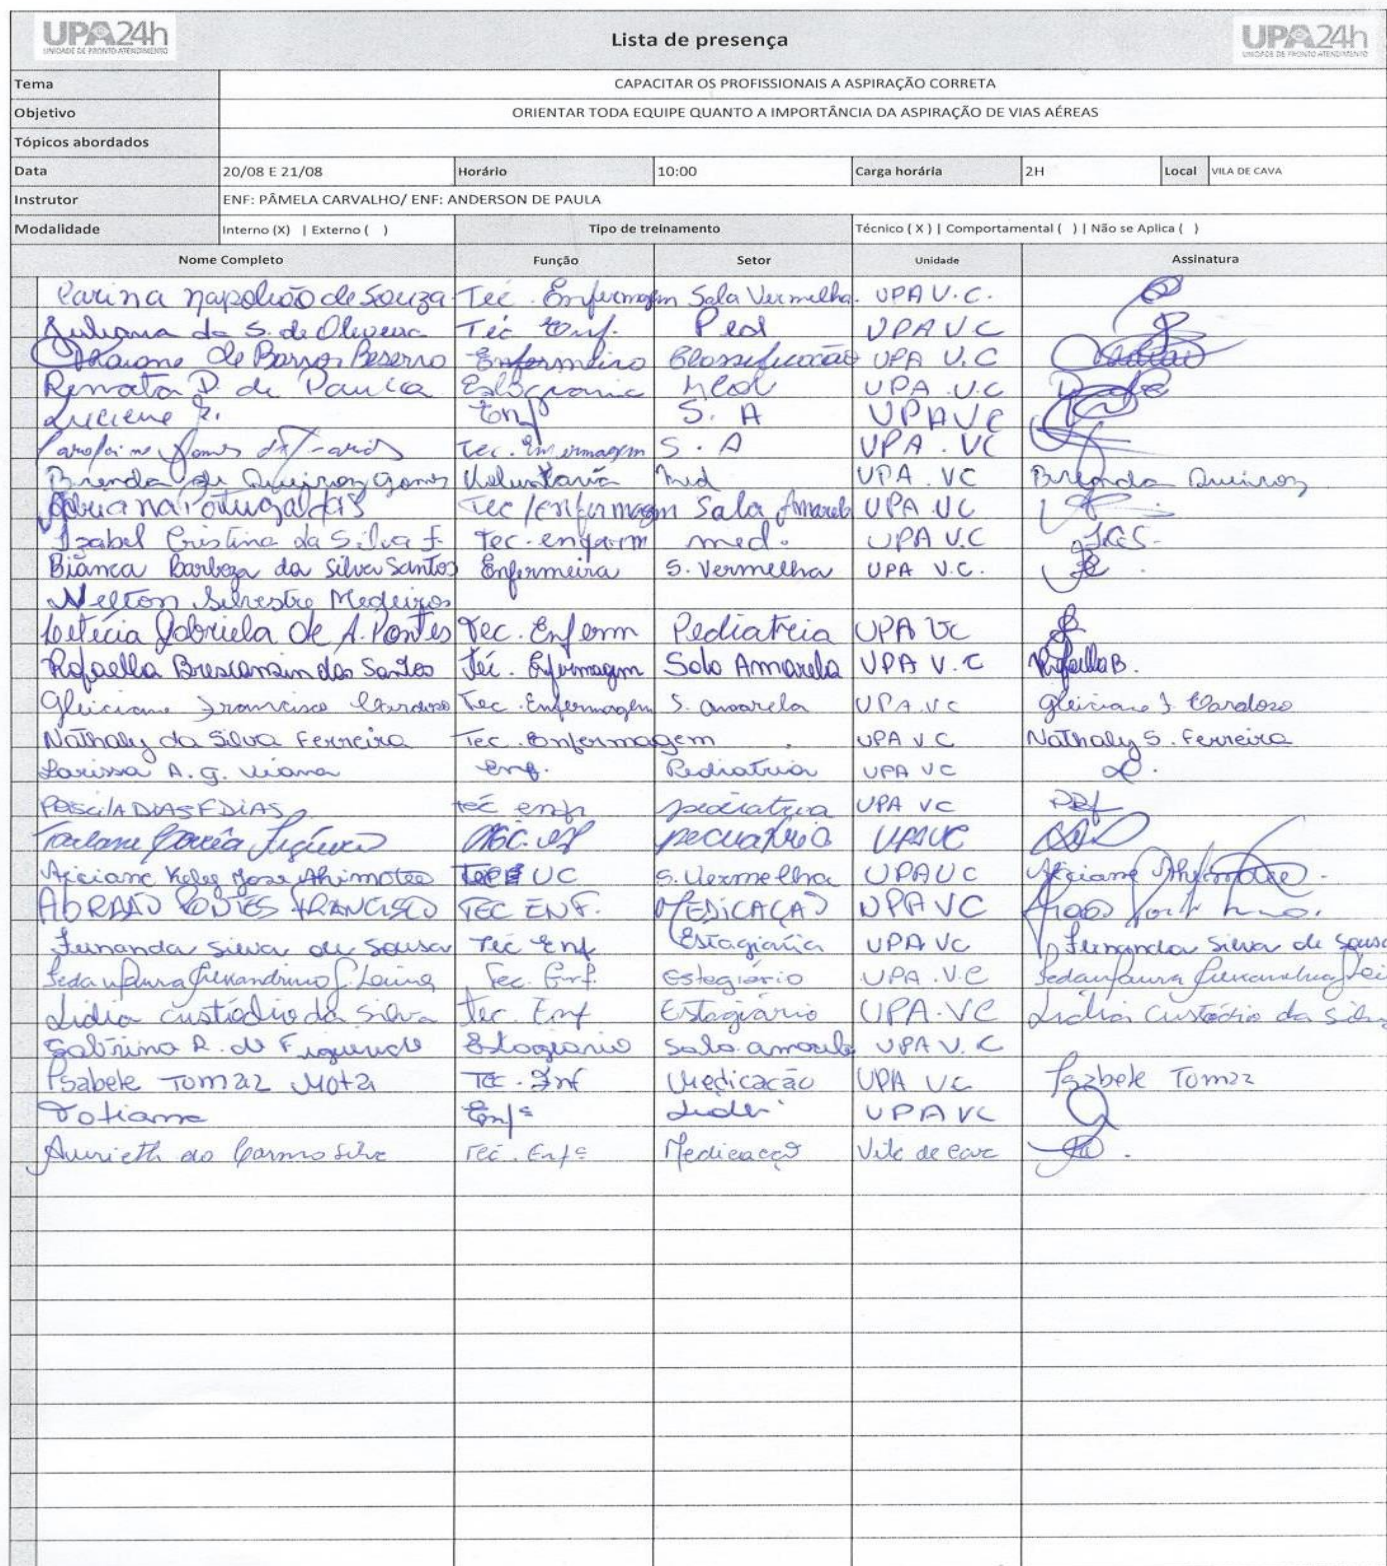 UPA24h Lista de presença UPA24h
UNIDADE DE PRONTO ATENDIMENTO UNIDADE DE PRONTO ATENDIMENTO
Tema CAPACITAR OS PROFISSIONAIS A ASPIRAÇÃO CORRETA
Objetivo ORIENTAR TODA EQUIPE QUANTO A IMPORTÂNCIA DA ASPIRAÇÃO DE VIAS AÉREAS
Tópicos abordados
Data 20/08 E 21/08 Horário 10:00 Carga horária 2H Local VILA DE CAVA
Instrutor ENF: PÂMELA CARVALHO/ ENF: ANDERSON DE PAULA
Modalidade Interno (X) | Externo ( ) Tipo de treinamento Técnico ( X ) | Comportamental ( ) | Não se Aplica ( )
Nome Completo Função Setor Unidade Assinatura
Carina Napoleão de Souza Tec. Enfermagem Sala Vermelha. UPA V.C.
Juliana da S. de Oliveira Tec Enf. Ped UPA VC
de Barros Beserro Enfermeiro Classificação UPA V.C
Renata P. de Paula UPA V.C
Luciene Enfª S. A UPA VC
Tec. Enfermagem S. A UPA. VC
Brenda de Queiroz Gomes Voluntaria Med UPA. VC Brenda Queiroz
Portugal Tec/enfermagem Sala Amarela UPA VC
Izabel Cristina da Silva F. Tec. enferm med. UPA V.C
Bianca Barboza da Silva Santos Enfermeira S. Vermelha UPA V.C.
Nelton Silvestre Medeiros
Letícia Gabriela de A. Pontes Tec. Enferm Pediatria UPA VC
Rafaella Brescansin dos Santos Téc. Enfermagem Sala Amarela UPA V.C Rafaella B.
Gleiciane Francisco Cardoso Tec. Enfermagem S. amarela UPA.VC Gleiciane F. Cardoso
Nathaly da Silva Ferreira Tec. Enfermagem UPA V.C Nathaly S. Ferreira
Larissa A. G. Viana enf. Pediatria UPA VC
DIAS F DIAS téc enf pediatria UPA VC
pediatria UPAVC
S. Vermelha UPAVC
ABRAÃO PONTES FRANCISCO TEC ENF. MEDICAÇÃO UPA VC
Fernanda Silva de Sousa Tec Enf Estagiária UPA VC Fernanda Silva de Sousa
Tec. Enf. Estagiário UPA.V.C
Lidia Custódio da Silva Tec. Enf Estagiário UPA.VC Lidia Custódio da Silva
Sabrina R. de Figueiredo Estagiario Sala amarela UPA V.C
Isabele Tomaz Mota Tec. Enf Medicação UPA VC Isabele Tomaz
Tatiana Enfª Lider UPA VC
do Carmo Silva Tec. Enfª Medicação Vila de Cava